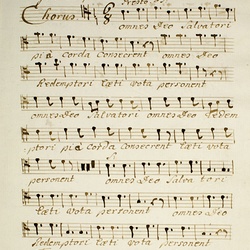 Presto
Chorus omnes Deo Salvatori
pia Corda Consecrent omnes Deo
Redemptori læti vota personent
omnes Deo Salvatori omnes Deo Redem
ptori pia Corda Consecrent læti vota
personent omnes Deo Salvatori
læti vota personent omnes Deo
Redemptori læti vota personent